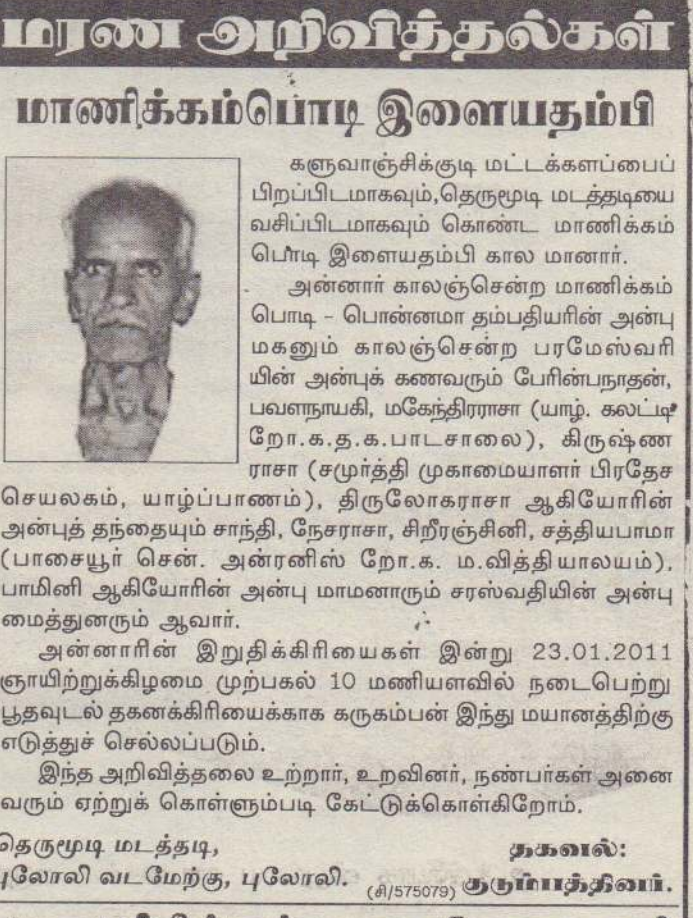 மரண அறிவித்தல்கள்
மாணிக்கம்பொடி இளையதம்பி
களுவாஞ்சிக்குடி மட்டக்களப்பைப்
பிறப்பிடமாகவும்,தெருமூடி மடத்தடியை
வசிப்பிடமாகவும் கொண்ட மாணிக்கம்
பொடி இளையதம்பி கால மானார்.
அன்னார் காலஞ்சென்ற மாணிக்கம்
பொடி – பொன்னமா தம்பதியரின் அன்பு
மகனும் காலஞ்சென்ற பரமேஸ்வரி
யின் அன்புக் கணவரும் பேரின்பநாதன்,
பவளநாயகி, மகேந்திரராசா (யாழ். கலட்டி
றோ.க.த.க.பாடசாலை), கிருஷ்ண
ராசா (சமுர்த்தி முகாமையாளர் பிரதேச
செயலகம், யாழ்ப்பாணம்), திருலோகராசா ஆகியோரின்
அன்புத் தந்தையும் சாந்தி, நேசராசா, சிறீரஞ்சினி, சத்தியபாமா
(பாசையூர் சென். அன்ரனிஸ் றோ.க. ம.வித்தியாலயம்),
பாமினி ஆகியோரின் அன்பு மாமனாரும் சரஸ்வதியின் அன்பு
மைத்துனரும் ஆவார்.
அன்னாரின் இறுதிக்கிரியைகள் இன்று 23.01.2011
ஞாயிற்றுக்கிழமை முற்பகல் 10 மணியளவில் நடைபெற்று
பூதவுடல் தகனக்கிரியைக்காக கருகம்பன் இந்து மயானத்திற்கு
எடுத்துச் செல்லப்படும்.
இந்த அறிவித்தலை உற்றார், உறவினர், நண்பர்கள் அனை
வரும் ஏற்றுக் கொள்ளும்படி கேட்டுக்கொள்கிறோம்.
தெருமூடி மடத்தடி, தகவல்:
புலோலி வடமேற்கு, புலோலி. (சி/575079) குடும்பத்தினர்.